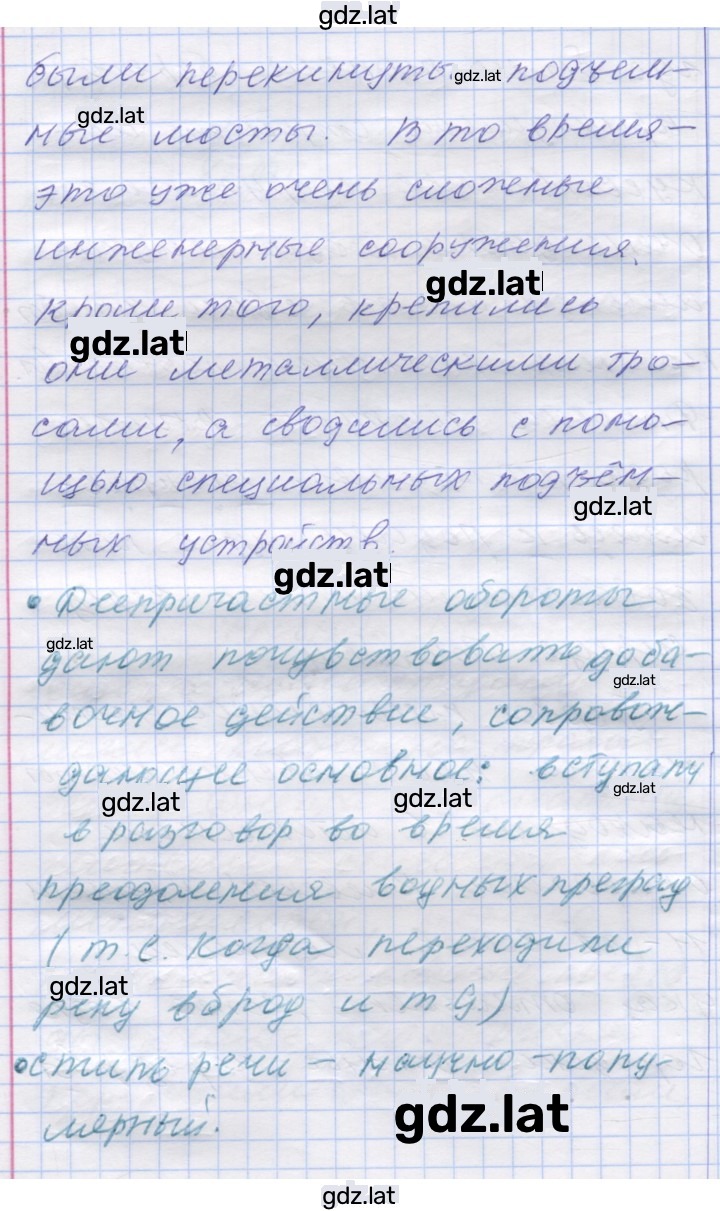 gdz.lat
были перекинуты gdz.lat подъем-
gdz.lat
ные мосты. В то время-
это уже очень сложные
инженерные сооружения.
gdz.lat
Кроме того, крепились
gdz.lat
они металлическими тро-
сами, а сводились с помо-
щью специальных подъём-
gdz.lat
ных устройств.
gdz.lat
• Деепричастные обороты
gdz.lat
дают почувствовать доба-
gdz.lat
вочное действие, сопровож-
дающее основное: вступали
gdz.lat gdz.lat gdz.lat
в разговор во время
преодоления водных преград
(т.е. когда переходили
gdz.lat
реку вброд и т.д.)
•стиль речи – научно-попу-
лярный.
gdz.lat
gdz.lat